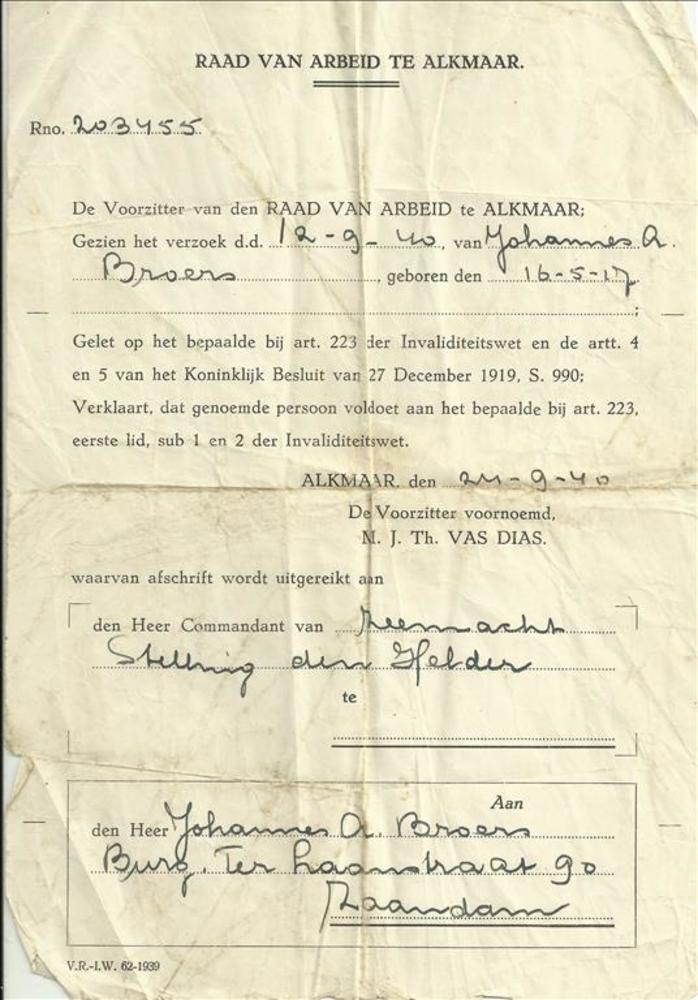 RAAD VAN ARBEID TE ALKMAAR.
Rno. 203455
De Voorzitter van den RAAD VAN ARBEID te ALKMAAR;
Gezien het verzoek d.d. 12-9-40, van Johannes A.
Broers, geboren den 16-5-17
;
Gelet op het bepaalde bij art. 223 der Invaliditeitswet en de artt. 4
en 5 van het Koninklijk Besluit van 27 December 1919, S. 990;
Verklaart, dat genoemde persoon voldoet aan het bepaalde bij art. 223,
eerste lid, sub 1 en 2 der Invaliditeitswet.
ALKMAAR, den 24-9-40
De Voorzitter voornoemd,
M. J. Th. VAS DIAS.
waarvan afschrift wordt uitgereikt aan
den Heer Commandant van Zeemacht
Stelling den Helder
te
Aan
den Heer Johannes A. Broers
Burg. Ter Laanstraat 90
Zaandam
V.R.-I.W. 62-1939